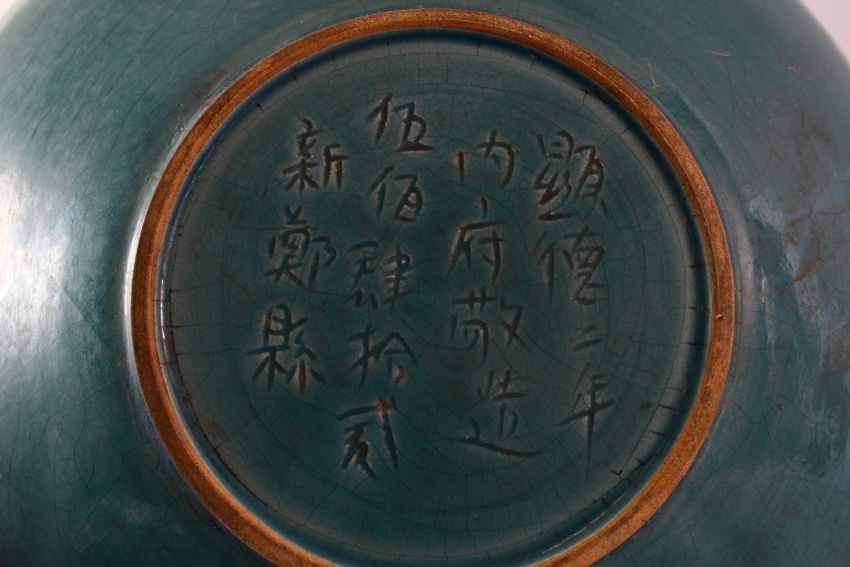 顯德二年
内府敬造
伍佰肆拾貳
新鄭縣